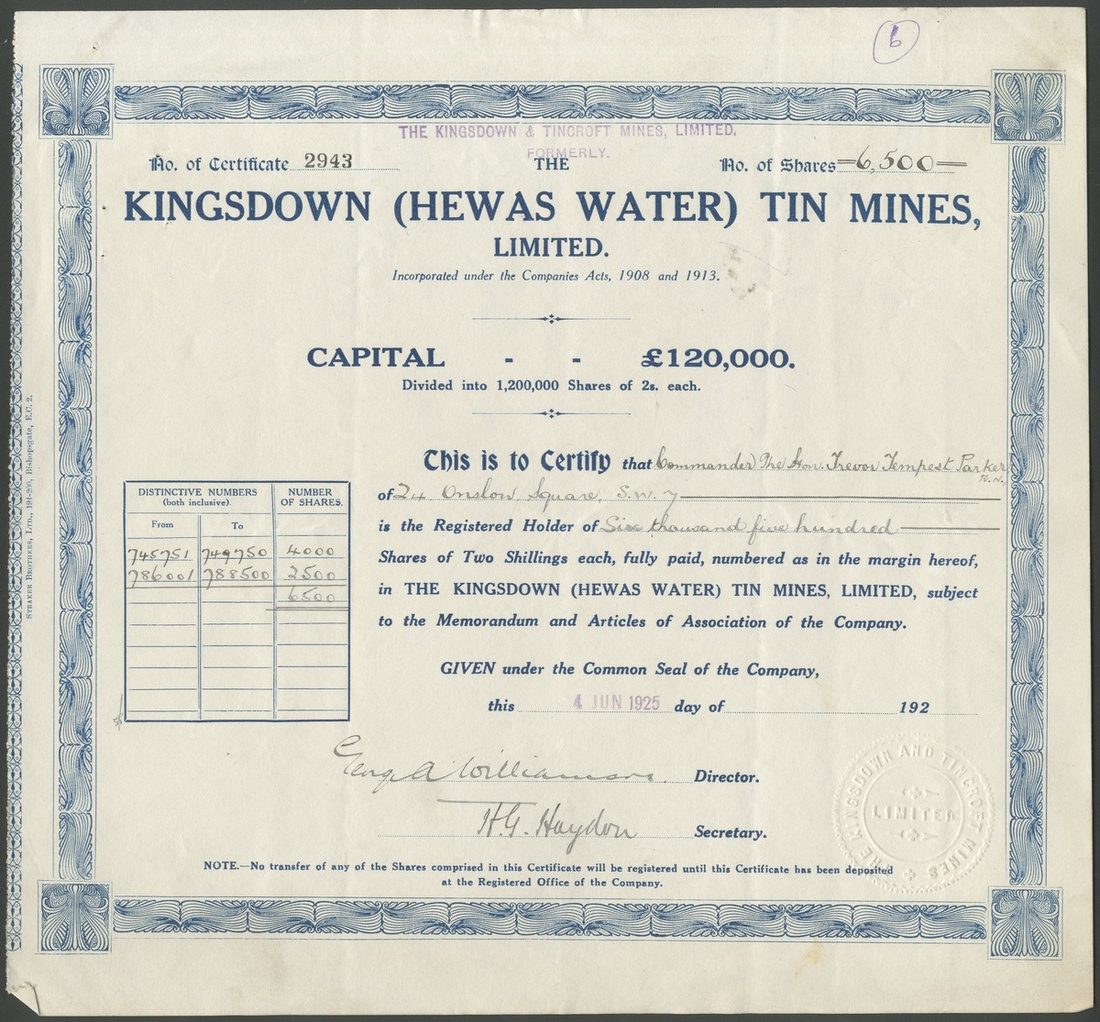 6
THE KINGSDOWN & TINCROFT MINES, LIMITED.
FORMERLY.
No. of Certificate 2943 THE No. of Shares 6,500
KINGSDOWN (HEWAS WATER) TIN MINES,
LIMITED.
Incorporated under the Companies Acts, 1908 and 1913.
CAPITAL - - £120,000.
Divided into 1,200,000 Shares of 2s. each.
This is to Certify that Commander The Hon. Trevor Tempest Parker R.N.,
of 24 Onslow Square, S.W. 7
is the Registered Holder of Six thousand five hundred
Shares of Two Shillings each, fully paid, numbered as in the margin hereof,
in THE KINGSDOWN (HEWAS WATER) TIN MINES, LIMITED, subject
to the Memorandum and Articles of Association of the Company.
DISTINCTIVE NUMBERS (both inclusive). NUMBER OF SHARES.
From To
745751 749750 4000
786001 788500 2500
6500
GIVEN under the Common Seal of the Company,
this 4 JUN 1925 day of 192
George A Williamson. Director.
H.G. Haydon Secretary.
THE KINGSDOWN AND TINCROFT MINES
LIMITED
NOTE.—No transfer of any of the Shares comprised in this Certificate will be registered until this Certificate has been deposited
at the Registered Office of the Company.
STRAKER BROTHERS, LTD., 194-200, Bishopsgate, E.C. 2.